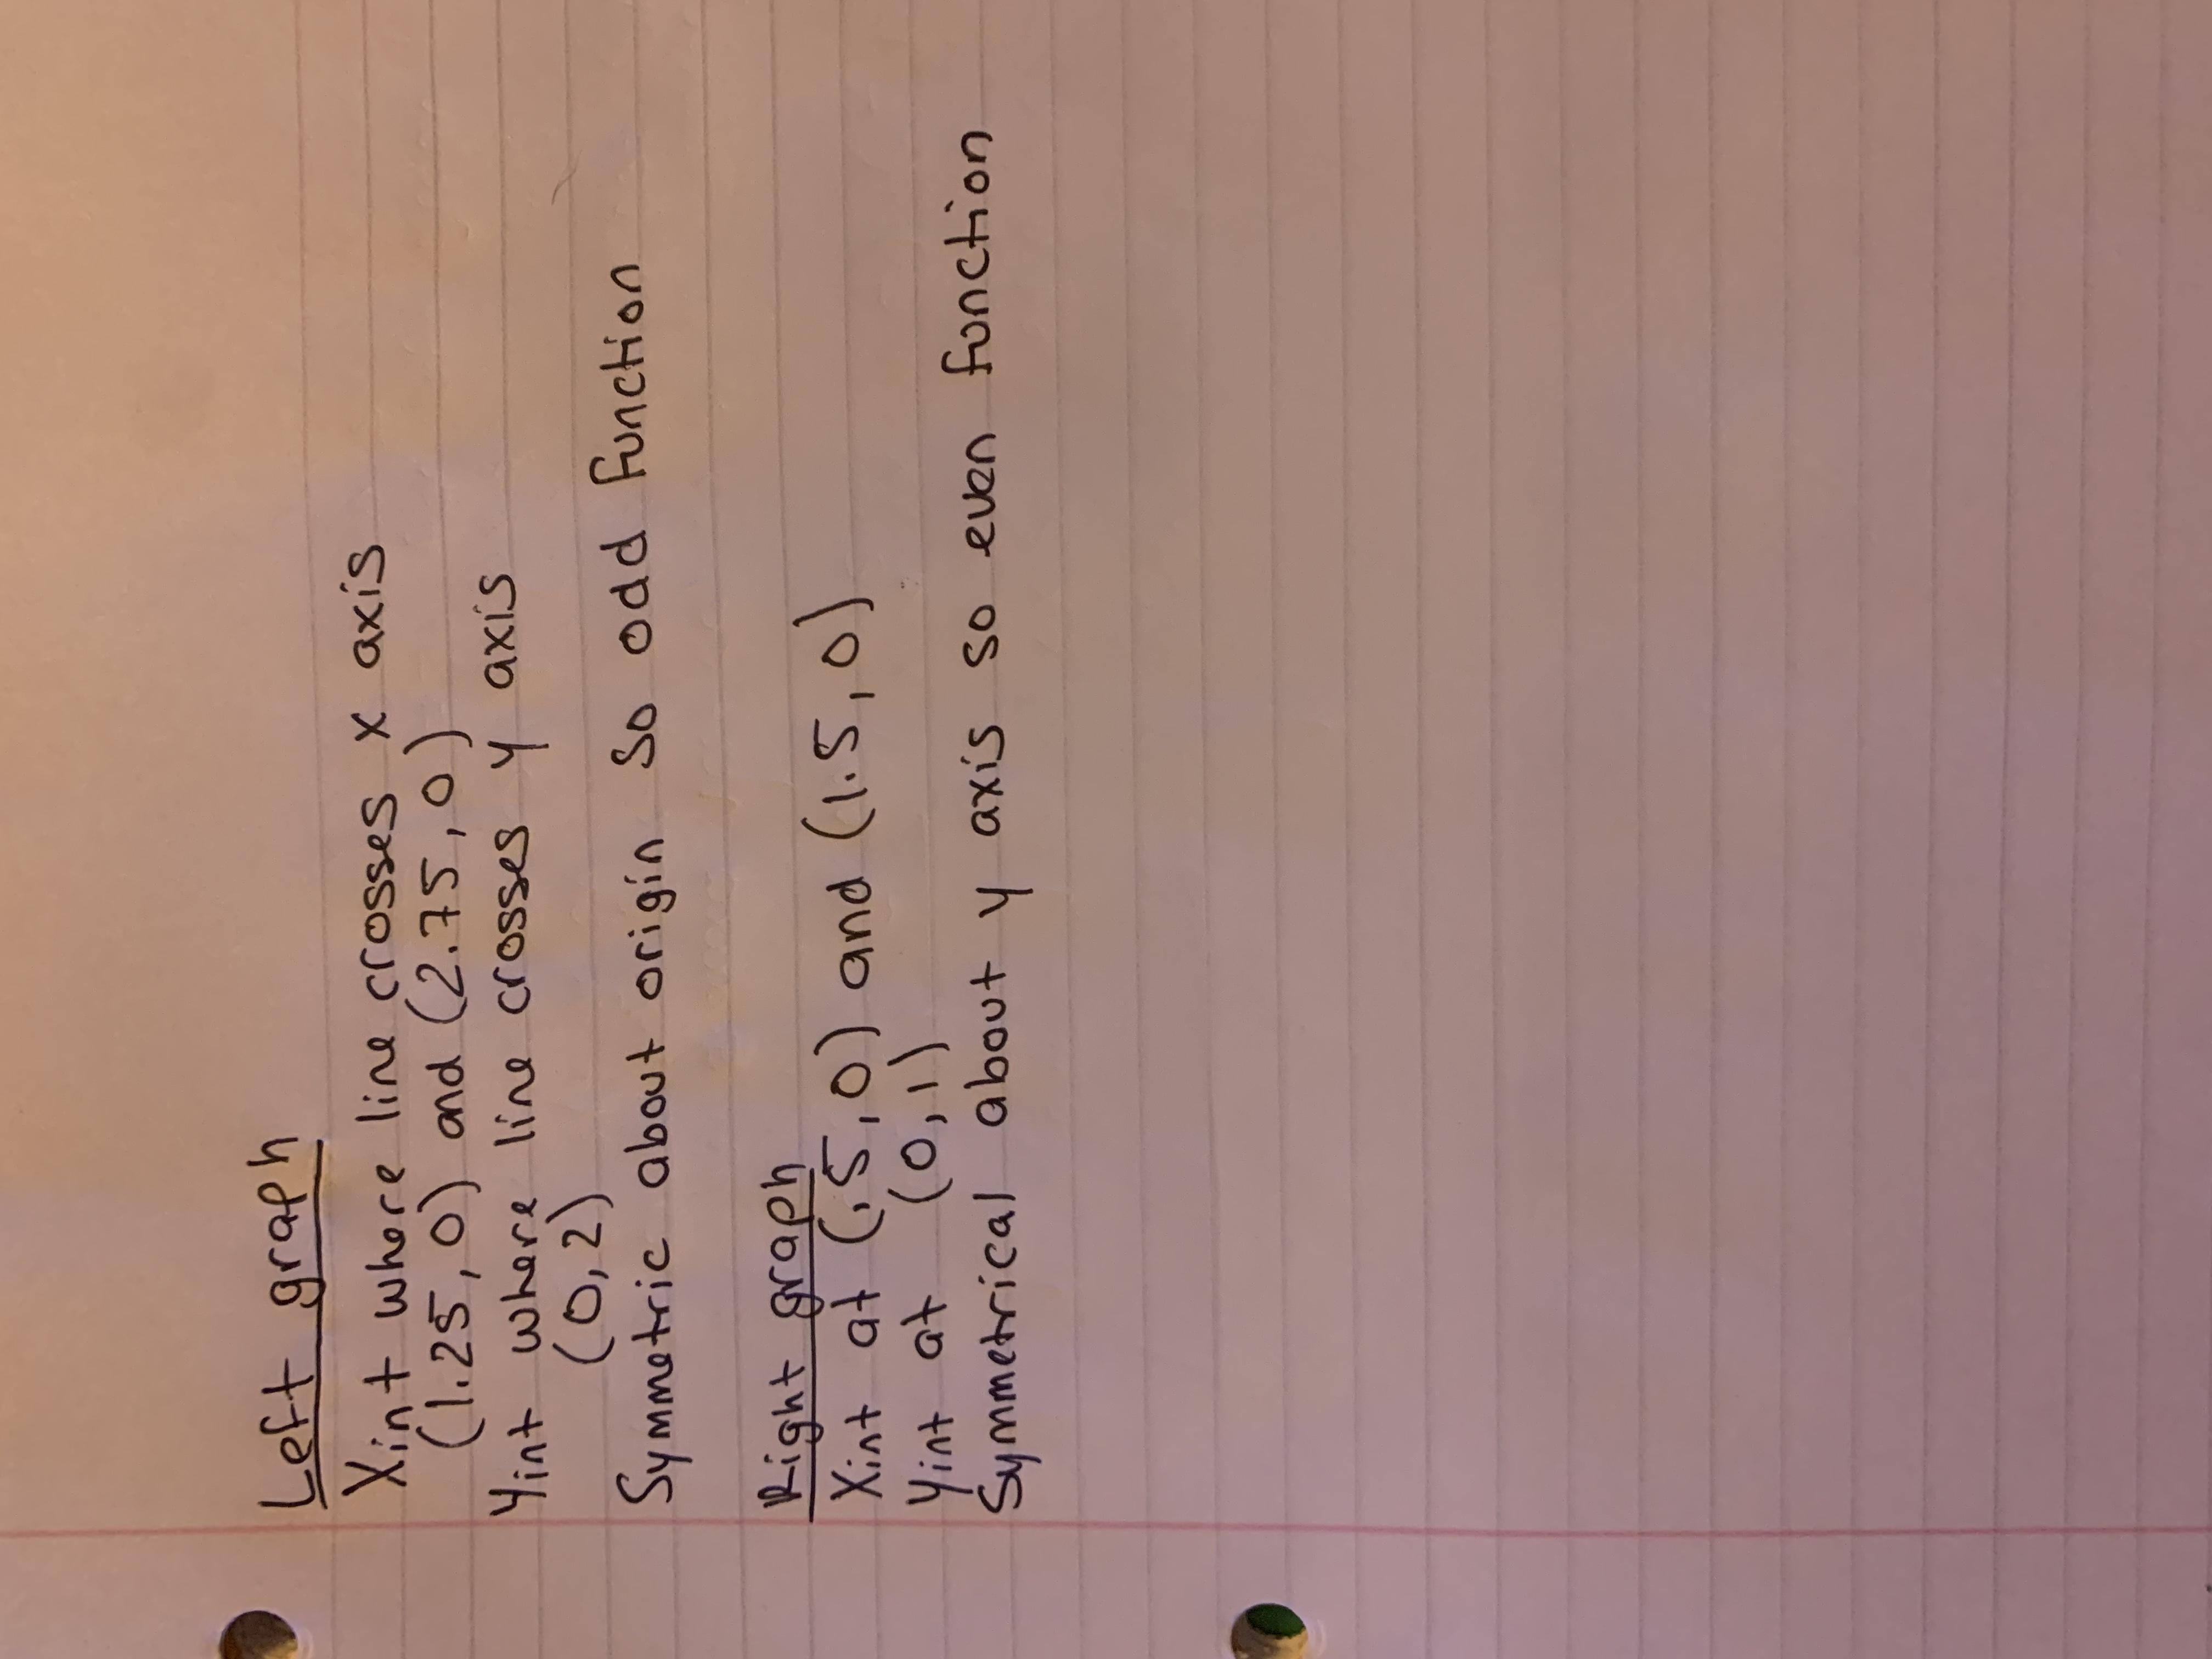 Left graph
Xint where line crosses x axis
(1.25,0) and (2.75,0)
Yint where line crosses y axis
(0,2)
Symmetric about origin So odd function
Right graph
Xint at (.5,0) and (1.5,0)
Yint at (0,1)
Symmetrical about y axis so even function